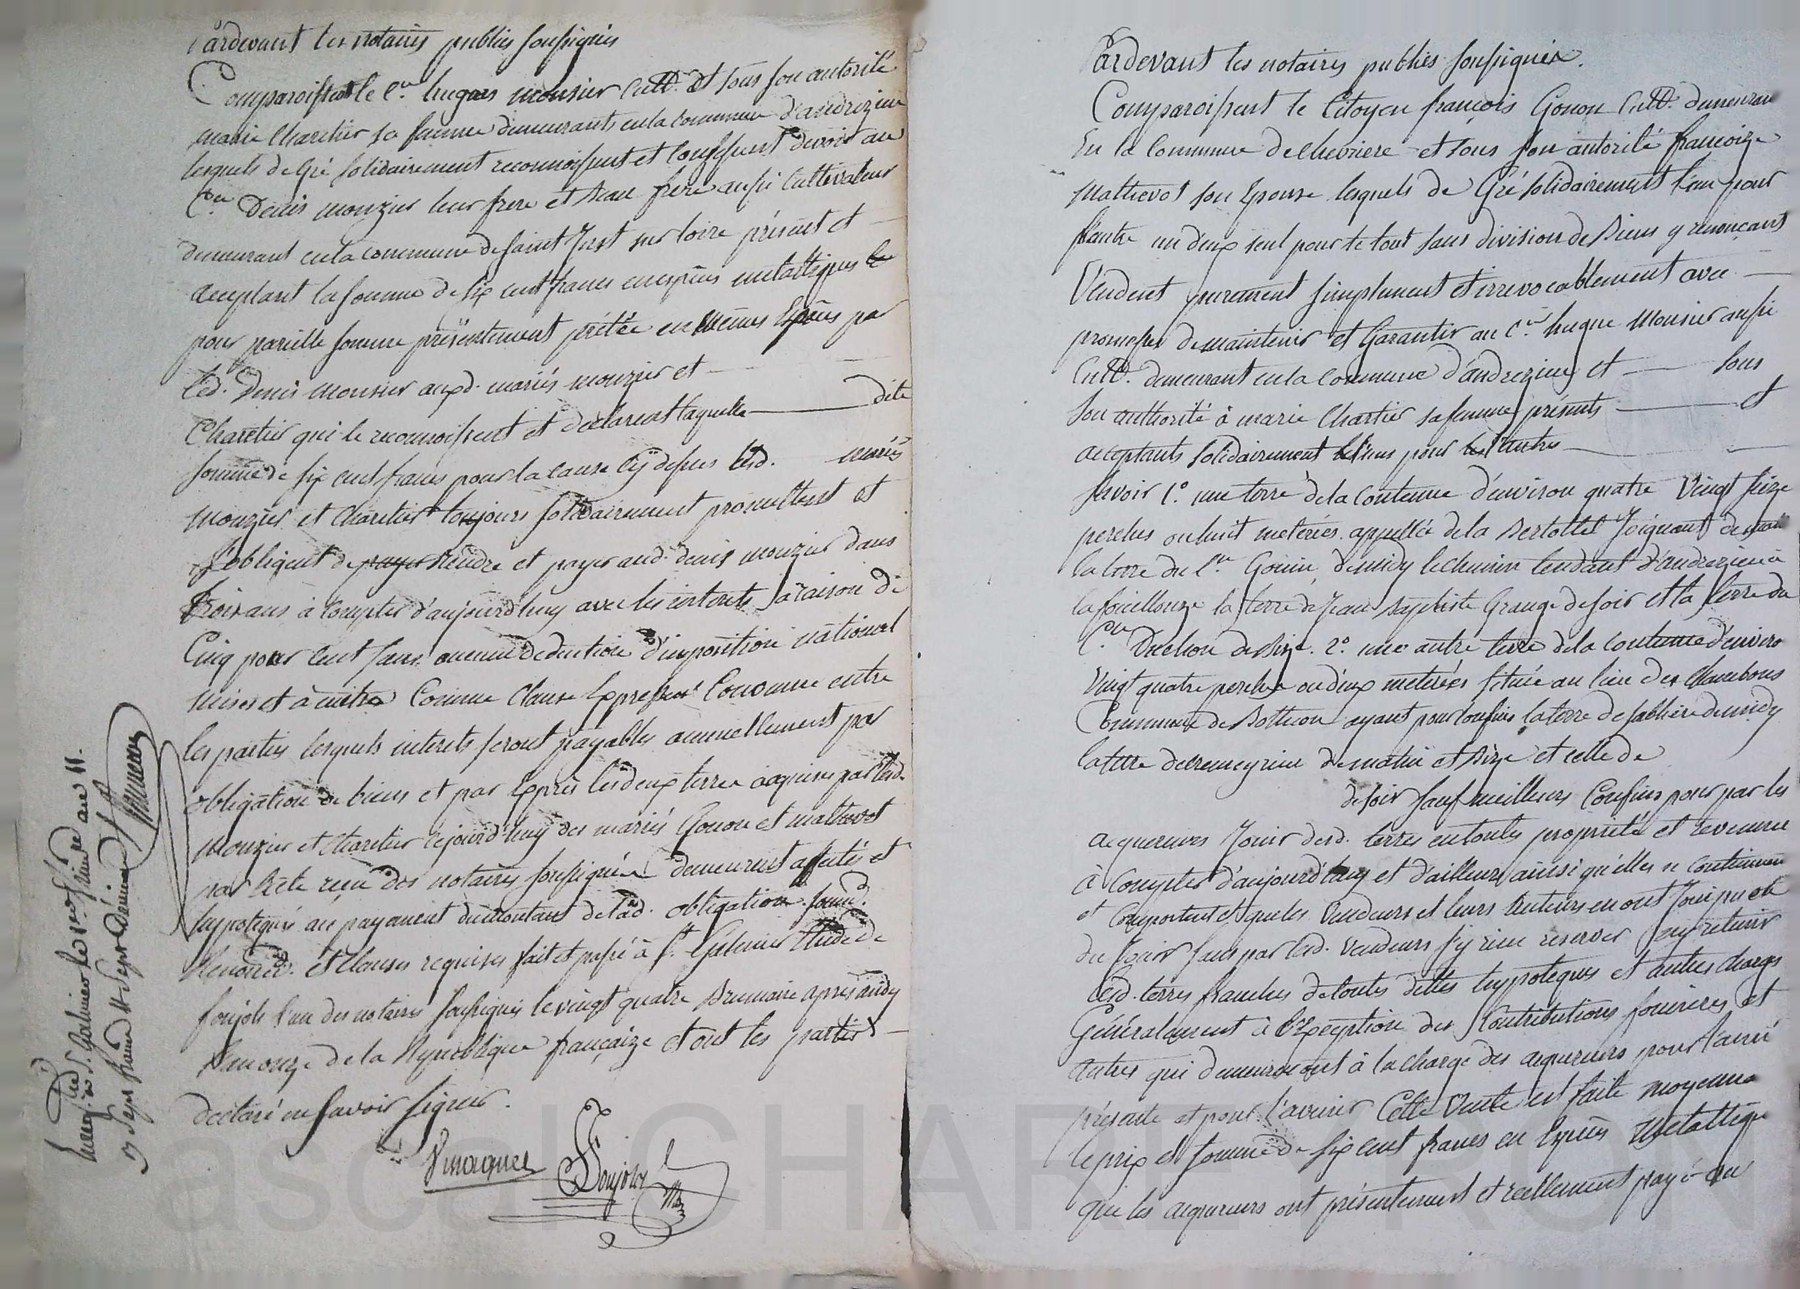 Pardevant les notaires publics soussignés
Comparoissent le C.en hugues mousier Cult.r et sous son autorité
marie Charetier sa femme demeurants en la commune d'andrezieu
lesquels de Gré solidairement reconnoissent et Confessent devoir au
C.en Denis mouzier leur frere et beau frere aussi Cultivateur
demeurant en la commune de saint Just sur loire présent et —
acceptant la somme de six cent francs en espèces metalliques
pour pareille somme présentement prétée en mêmes Espèces par
led. Denis mousier auxd. mariés mouzier et —
Charetier qui le reconnoissent et déclarent laquelle — dite
somme de six cent francs pour la cause cy dessus lesd. mariés
mouzier et Charetier toujours solidairement promettent et
s'obligent de payer rendre et payer aud. denis mouzier dans
trois ans à Compter d'aujourd'huy avec les interets à raison de
Cinq pour cent sans aucune deduction d'imposition national
mises et à mettre Comme Clause Expresse Convenue entre
les parties lesquels interets seront payables annuellement par
obligation de biens et par Exprès les deux terres acquises par lesd.
mouzier et Charetier cejourd'huy des mariés Gonon et mathevot
par acte reçu des notaires soussignés demeurent affectés et
hypotequés au payement du montant de lad. obligation. soum.
Renonc. et Clauses requises fait et passé à S.t Galmier Etude de
Soujols l'un des notaires soussignés le vingt quatre Brumaire après midy
l'an onze de la République françaize et ont les parties —
declaré ne savoir signer.
Soujols
Enregist. à S.t Galmier le
Pardevant les notaires publics soussignés.
Comparoissent le Citoyen françois Gonon Cult.r demeurant
En la Commune de Chevriere et sous son autorité francoize
Mathevot son Epouse lesquels de Gré solidairement l'un pour
l'autre un deux seul pour le tout sans division de Biens y renonçant
Vendent purement simplement et irrevocablement avec —
promesse de maintenir et Garantir au C.en hugue Mousier aussi
Cult.r demeurant en la Commune d'andrezieu et — sous
son authorité à marie Chartier sa femme présents — et
acceptants solidairement l'un pour l'autre —
savoir 1.o une terre de la contenue d'environ quatre Vingt seize
perches ou huit meterées appellée de la Bertotte Joignant de matin
la terre du C.en Gonin, de midy le chemin tendant d'andrezieu à
la fouillouze la terre de Jean Baptiste Grange de soir et la terre du
C.en Duchon de bize. 2.o une autre terre de la contenue d'environ
Vingt quatre perches ou deux meterées située au lieu des Chambons
Commune de Botheon ayant pour confins la terre de sabliere de midy
la terre de de matin et bize et celle de
de soir sauf meilleurs Confins pour par les
acquereurs Jouir desd. terres en toutes propriété et revenue
à Compter d'aujourd'huy et d'ailleurs ainsi qu'elles se contiennent
et Comportent et que les Vendeurs et leurs auteurs en ont Joui pu ou
du Jouir sans par lesd. vendeurs s'y rien reserver ny retenir
Lesd. terres franches de toutes dettes hypoteques et autres charges
Généralement à l'Exception des Contributions foncieres et
autres qui demeureront à la charge des acquereurs pour l'année
présente et pour l'avenir Cette Vente est faite moyennant
le prix et somme de six cent francs en Espèces Metallique
que les acquereurs ont présentement et reellement payé au
ascal CHARTRON